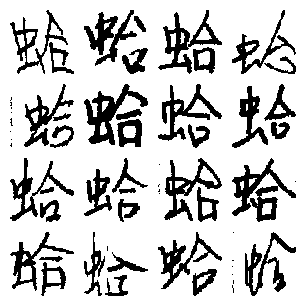 蛤蛤蛤蛤
蛤蛤蛤蛤
蛤蛤蛤蛤
蛤蛤蛤蛤